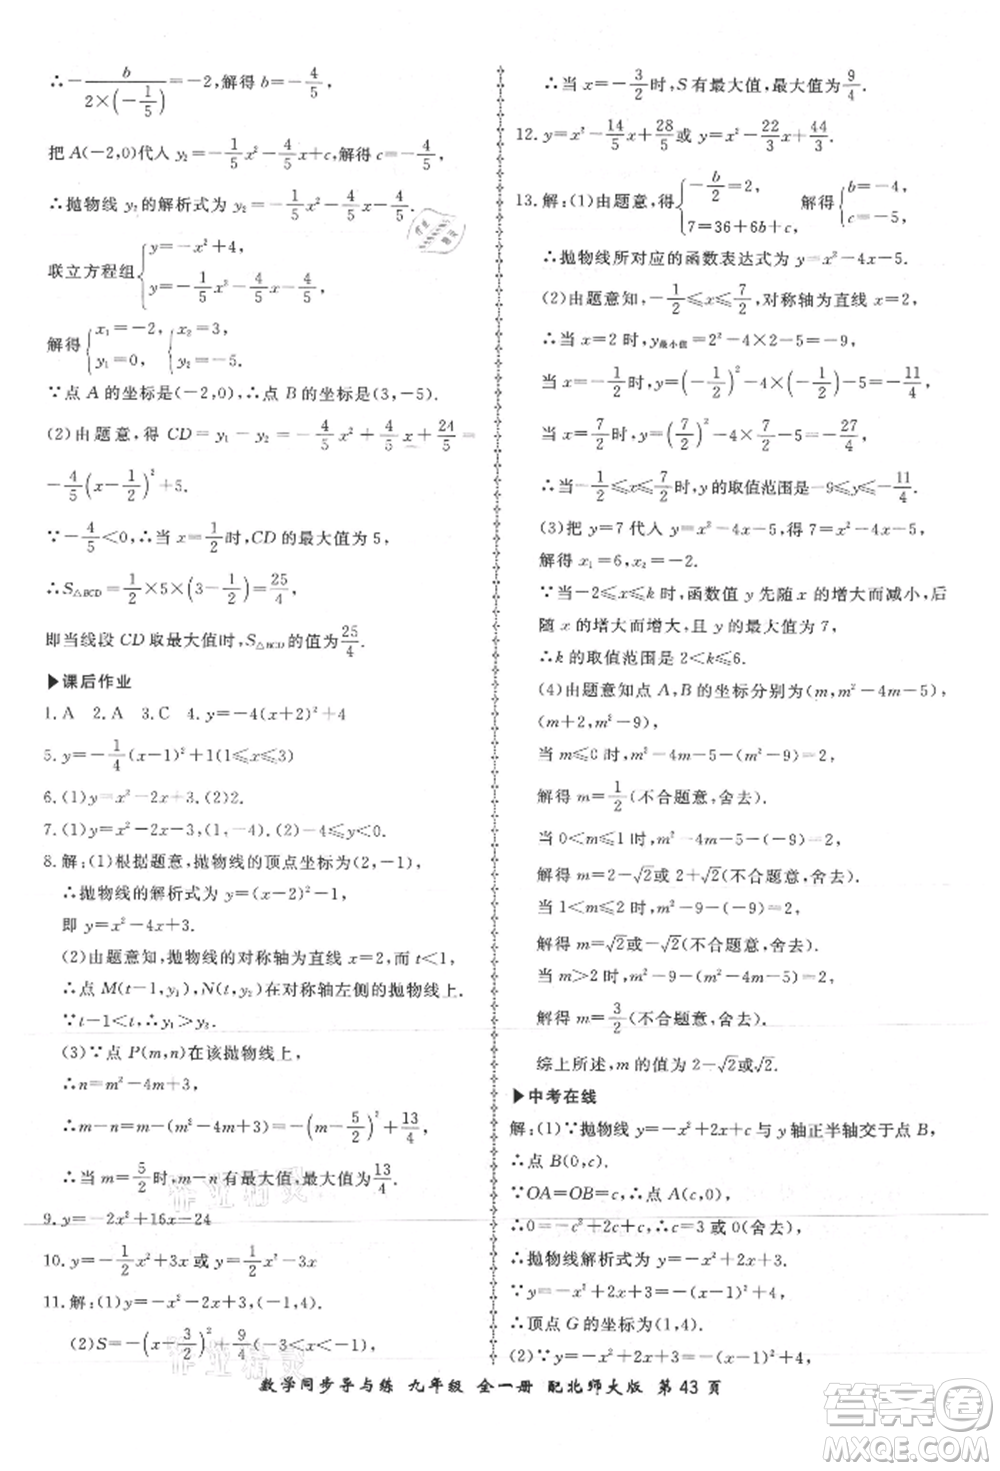 ∴-b/(2×(-1/5))=-2,解得 b=-4/5
把 A(-2,0)代入 y₂=-1/5x²-4/5x+c,解得 c=-4/5,
∴抛物线 y₂ 的解析式为 y₂=-1/5x²-4/5x-4/5.
联立方程组{y=-x²+4, y=-1/5x²-4/5x-4/5,
解得{x₁=-2, y₁=0, {x₂=3, y₂=-5.
∵点 A 的坐标是(-2,0),∴点 B 的坐标是(3,-5).
(2)由题意,得 CD=y₁-y₂=-4/5x²+4/5x+24/5=
-4/5(x-1/2)²+5.
∵-4/5<0,∴当 x=1/2时,CD 的最大值为 5,
∴S△BCD=1/2×5×(3-1/2)=25/4,
即当线段 CD 取最大值时,S△BCD 的值为25/4.
▶课后作业
1. A 2. A 3. C 4. y=-4(x+2)²+4
5. y=-1/4(x-1)²+1(1≤x≤3)
6. (1)y=x²-2x+3. (2)2.
7. (1)y=x²-2x-3,(1,-4). (2)-4≤y<0.
8. 解:(1)根据题意,抛物线的顶点坐标为(2,-1),
∴抛物线的解析式为 y=(x-2)²-1,
即 y=x²-4x+3.
(2)由题意知,抛物线的对称轴为直线 x=2,而 t<1,
∴点 M(t-1,y₁),N(t,y₂)在对称轴左侧的抛物线上.
∵t-1<t,∴y₁>y₂.
(3)∵点 P(m,n)在该抛物线上,
∴n=m²-4m+3,
∴m-n=m-(m²-4m+3)=-(m-5/2)²+13/4,
∴当 m=5/2时,m-n 有最大值,最大值为13/4.
9. y=-2x²+16x-24
10. y=-1/2x²+3x 或 y=1/2x²-3x
11. 解:(1)y=-x²-2x+3,(-1,4).
(2)S=-(x+3/2)²+9/4(-3<x<0),
∴当 x=-3/2时,S 有最大值,最大值为9/4.
12. y=x²-14/5x+28/5或 y=x²-22/3x+44/3.
13. 解:(1)由题意,得{-b/2=2, 7=36+6b+c, 解得{b=-4, c=-5.
∴抛物线所对应的函数表达式为 y=x²-4x-5.
(2)由题意知,-1/2≤x≤7/2,对称轴为直线 x=2,
∴当 x=2 时,y最小值=2²-4×2-5=-9,
当 x=-1/2时,y=(-1/2)²-4×(-1/2)-5=-11/4,
当 x=7/2时,y=(7/2)²-4×7/2-5=-27/4,
∴当-1/2≤x≤7/2时,y 的取值范围是-9≤y≤-11/4.
(3)把 y=7 代入 y=x²-4x-5,得 7=x²-4x-5,
解得 x₁=6,x₂=-2.
∵当-2≤x≤k 时,函数值 y 先随 x 的增大而减小,后
随 x 的增大而增大,且 y 的最大值为 7,
∴k 的取值范围是 2<k≤6.
(4)由题意知点 A,B 的坐标分别为(m,m²-4m-5),
(m+2,m²-9).
当 m≤0 时,m²-4m-5-(m²-9)=2,
解得 m=1/2(不合题意,舍去).
当 0<m≤1 时,m²-4m-5-(-9)=2,
解得 m=2-√2或 2+√2(不合题意,舍去).
当 1<m≤2 时,m²-9-(-9)=2,
解得 m=√2或-√2(不合题意,舍去).
当 m>2 时,m²-9-(m²-4m-5)=2,
解得 m=3/2(不合题意,舍去).
综上所述,m 的值为 2-√2或√2.
▶中考在线
解:(1)∵抛物线 y=-x²+2x+c 与 y 轴正半轴交于点 B,
∴点 B(0,c).
∵OA=OB=c,∴点 A(c,0),
∴0=-c²+2c+c,∴c=3 或 0(舍去),
∴抛物线解析式为 y=-x²+2x+3.
∵y=-x²+2x+3=-(x-1)²+4,
∴顶点 G 的坐标为(1,4).
(2)∵y=-x²+2x+3=-(x-1)²+4,
数学同步导与练 九年级 全一册 配北师大版 第 43 页
作业精灵
作业精灵
答案圈
MXQE.COM